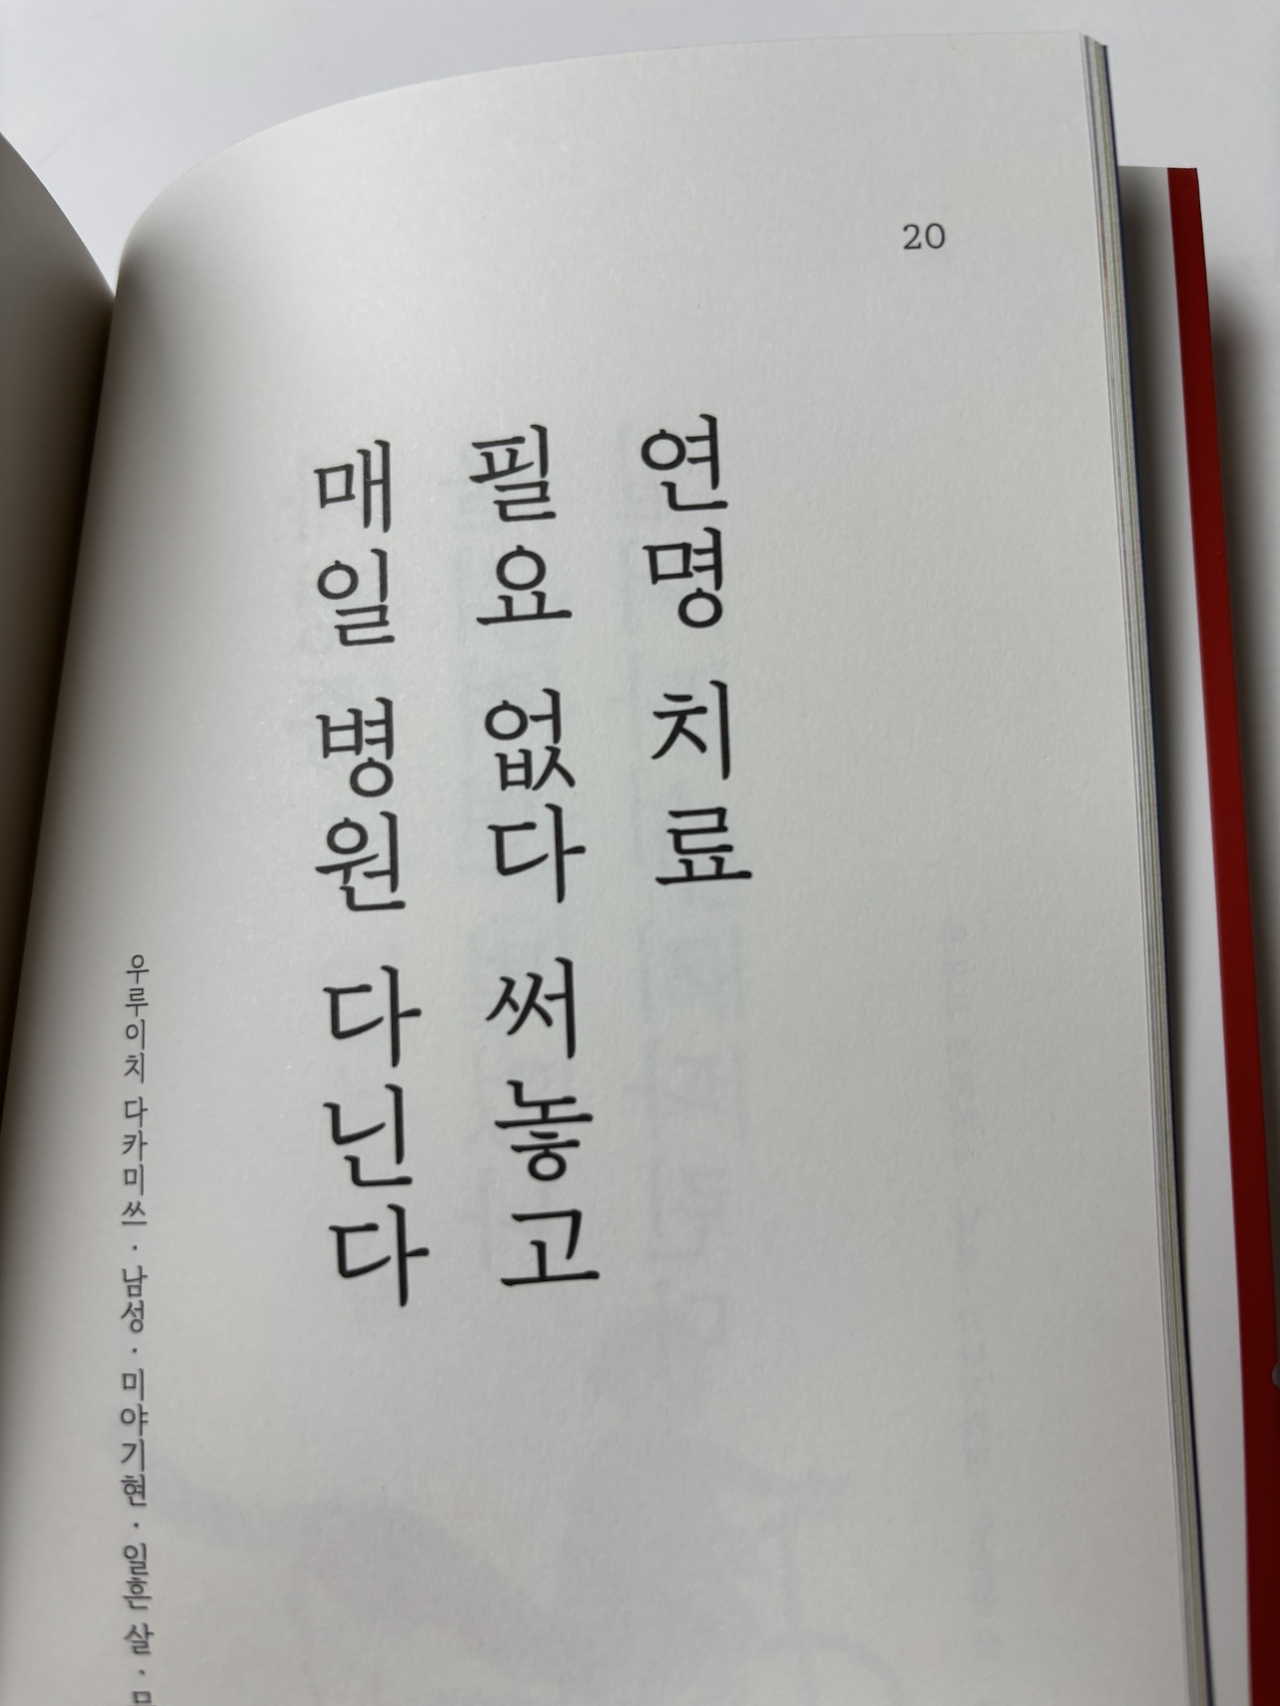 20
연명 치료
필요 없다 써놓고
매일 병원 다닌다
우루이치 다카미쓰 · 남성 · 미야기현 · 일흔 살 ·